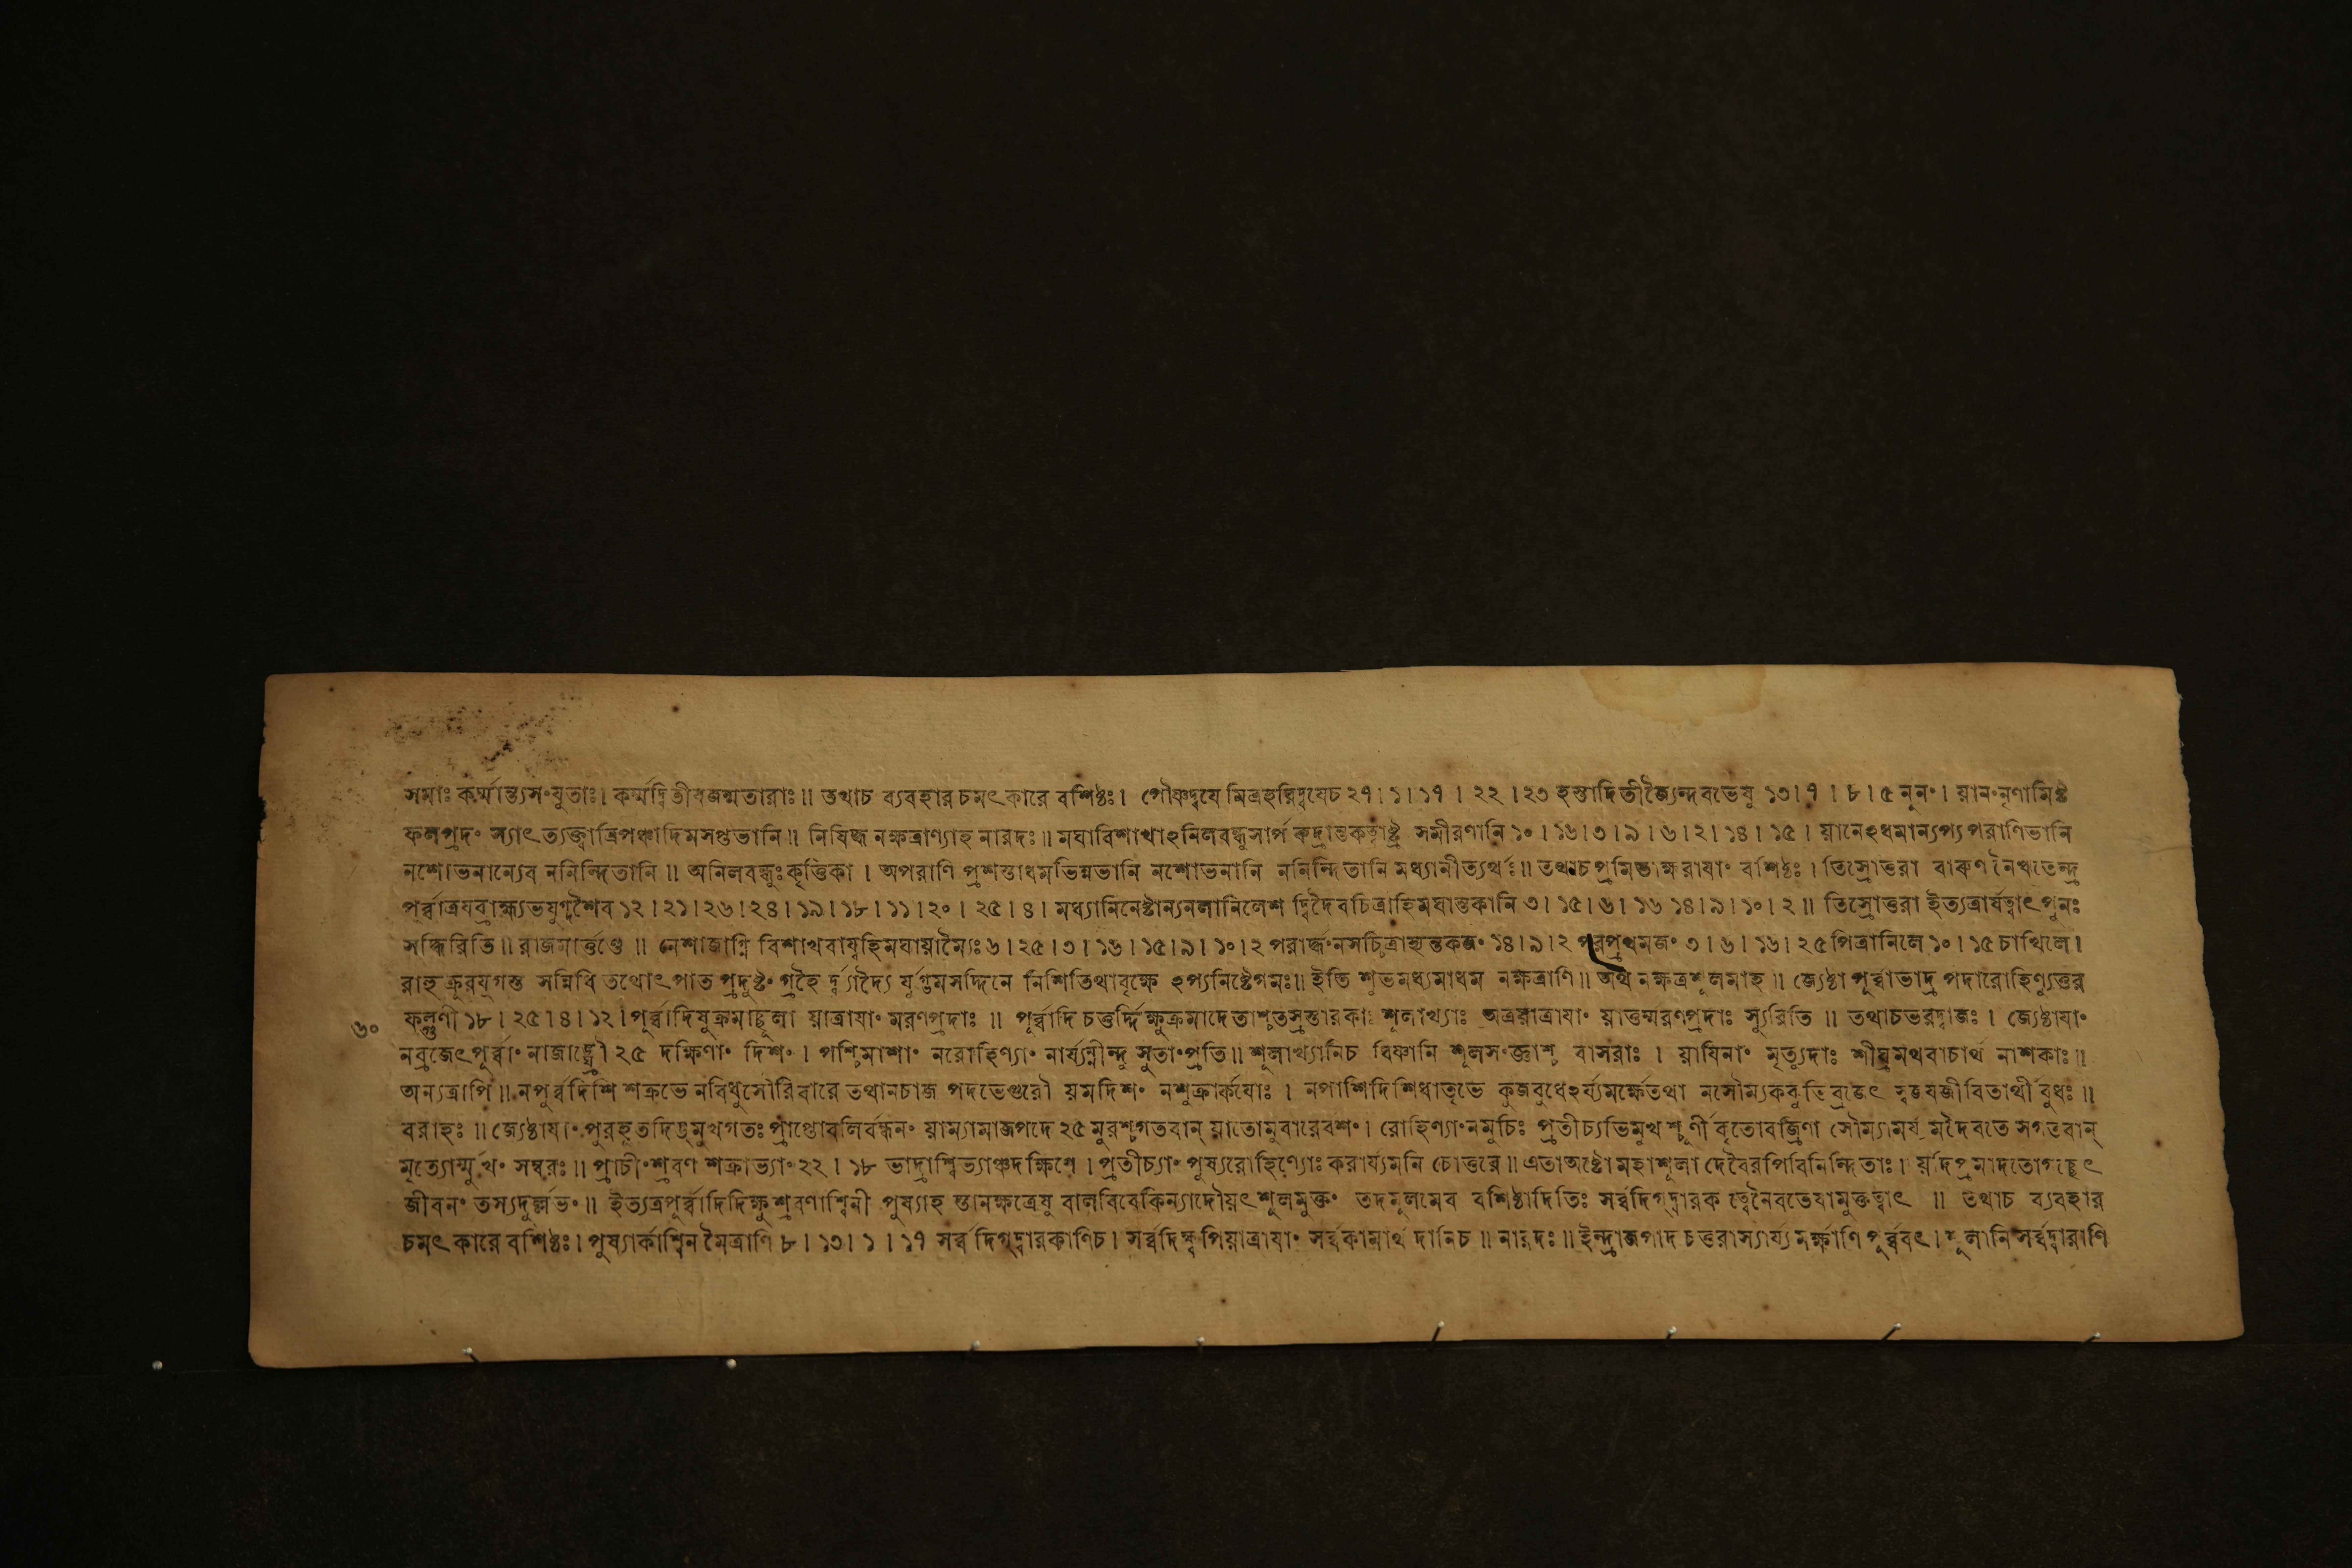 সমাঃ কর্ম্মান্ত্যসংযুতাঃ। কর্ম্মদ্বিতীয়জন্মতারাঃ॥ তথাচ ব্যবহারচমৎকারে বশিষ্ঠঃ। পৌষ্ণদ্বযে মিত্রহরিদ্বযেচ ২৭।১।১৭। ২২।২৩ হস্তাদিতীজ্যৈন্দবভেষু ১৩।৭।৮।৫ নূনং। য়ানংনৃণামিষ্ট
ফলপ্রদং স্যাৎ ত্যক্ত্বাত্রিপঞ্চাদিমসপ্তভানি॥ নিষিদ্ধ নক্ষত্রাণ্যাহ নারদঃ॥ মঘাবিশাখাঽনিলবন্ধুসার্প রুদ্রান্তকত্বাষ্ট্র সমীরণানি ১০।১৬।৩।৯।৬।২।১৪।১৫। য়ানেঽধমান্যপ্য পরাণিভানি
নশোভনান্যেব ননিন্দিতানি॥ অনিলবন্ধুঃকৃত্তিকা। অপরাণি প্রশস্তাধমভিন্নভানি নশোভনানি ননিন্দিতানি মধ্যানীত্যর্থঃ॥ তথাচ প্রমিতাক্ষরাযাং বশিষ্ঠঃ। তিস্রোত্তরা বারুণ নৈঋতেন্দ্র
পূর্ব্বাত্রযব্রাহ্ম্যভযুগ্মশৈব ১২।২১।২৬।২৪।১৯।১৮।১১।২০।২৫।৪। মধ্যানিনেষ্টান্যনলানিলেশ দ্বিদৈবচিত্রাহিমঘান্তকানি ৩।১৫।৬।১৬ ১৪।৯।১০।২॥ তিস্রোত্তরা ইত্যত্রার্যত্বাৎপুনঃ
সন্ধিরিতি॥ রাজমার্ত্তণ্ডে॥ নেশাজাগ্নি বিশাখবায্বহিমঘাযাম্যৈঃ ৬।২৫।৩।১৬।১৫।৯।১০।২ পরার্দ্ধংনসচিত্রাহ্যন্তকজং ১৪।৯।২ পরপ্রথমজং ৩।৬।১৬।২৫ পিত্রানিলে ১০।১৫ চাখিলে।
রাহু ক্রুরযুগস্ত সন্নিধি তথোৎপাত প্রদুষ্টং গ্রহৈ র্য্যুগ্মসদ্দিনে নিশিতিথাবৃক্ষে ঽপ্যনিষ্টেগমঃ॥ ইতি শুভমধ্যমাধম নক্ষত্রাণি॥ অথ নক্ষত্রশূলমাহ॥ জ্যেষ্ঠা পূর্ব্বাভাদ্র পদারোহিণ্যুত্তর
৬০ ফল্গুণী ১৮।২৫।৪।১২। পূর্ব্বাদিষুক্রমাচ্ছূলা য়াত্রাযাং মরণপ্রদাঃ॥ পূর্ব্বাদি চতুর্দ্দিক্ষুক্রমাদেতাশ্চতস্রস্তারকাঃ শূলাখ্যাঃ অত্রয়াত্রাযাং য়াতুর্ম্মরণপ্রদাঃ স্যুরিতি॥ তথাচভরদ্বাজঃ। জ্যেষ্ঠাযাং
নব্রজেৎপূর্ব্বাং নাজাঙ্ঘ্রৌ ২৫ দক্ষিণাং দিশং। পশ্চিমাশাং নরোহিণ্যাং নার্য্যম্নীন্দু সুতাংপ্রতি॥ শূলাখ্যানিচ ধিষ্ণানি শূলসংজ্ঞাশ্চ বাসরাঃ। য়াযিনাং মৃত্যুদাঃ শীঘ্রমথবাচার্থ নাশকাঃ॥
অন্যত্রাপি॥ নপূর্ব্বদিশি শক্রভে নবিধুসৌরিবারে তথানচাজ পদভেগুরৌ য়মদিশং নশুক্রার্কযোঃ। নপাশিদিশিধাতৃভে কুজবুধেঽর্য্যমর্ক্ষেতথা নসৌম্যককুভি ব্রজেৎ জীবিতার্থী বুধঃ॥
বরাহঃ॥ জ্যেষ্ঠাযাং পুরহূতদিঙ্মুখগতঃ প্রাপ্তোবলির্বন্ধনং য়াম্যামাজপদে ২৫ মুরশ্চগতবান্ য়াতোমুরারেবশং। রোহিণ্যাংনমুচিঃ প্রতীচ্যভিমুখ শ্চূর্ণীকৃতোবজ্রিণা সৌম্যামর্য মদৈবতে সগতবান্
মৃত্যোর্ম্মুখং সম্বরঃ॥ প্রাচীংশ্রবণ শক্রাভ্যাং ২২।১৮ ভাদ্রাশ্বিভ্যাঞ্চদক্ষিণে। প্রতীচ্যাং পুষ্যরোহিণ্যোঃ করার্য্যমনি চোত্তরে॥ এতাঅষ্টৌমহাশূলা দেবৈরপিবিনিন্দিতাঃ। য়দিপ্রমাদতোগচ্ছেৎ
জীবনং তস্যদুর্ল্লভং॥ ইত্যত্রপূর্ব্বাদিদিক্ষুশ্রবণাশ্বিনী পুষ্যাহ স্তানক্ষত্রেষু বালবিবেকিন্যাদৌয়ৎশূলমুক্তং তদমূলমেব বশিষ্ঠাদিতিঃ সর্ব্বদিগ্দ্বারক ত্বেনৈবতেষামুক্তত্বাৎ॥ তথাচ ব্যবহার
চমৎকারে বশিষ্ঠঃ। পুষ্যার্কাশ্বিন মৈত্রাণি ৮।১৩।১।১৭ সর্ব্ব দিগ্দ্বারকাণিচ। সর্ব্বদিক্ষ্বপিয়াত্রাযাং সর্ব্বকামার্থ দানিচ॥ নারদঃ॥ ইন্দ্রাজপাদ চতুরাস্যার্য্যমর্ক্ষাণি পূর্ব্ববৎ। শূলানি সর্ব্বদ্বারাণি